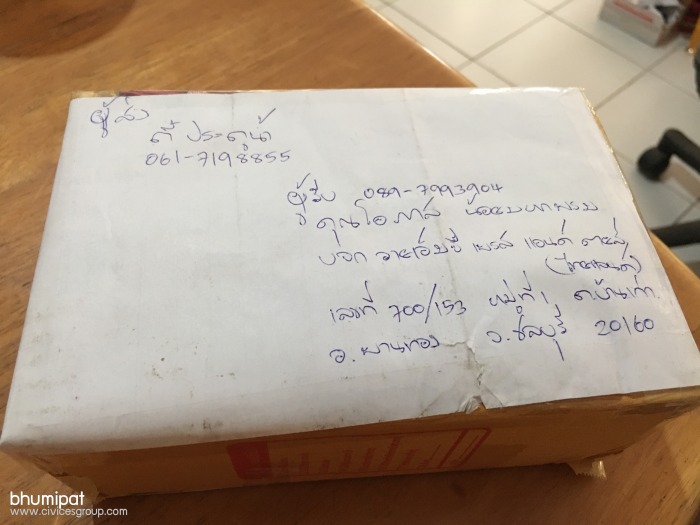 ผู้ส่ง
ตี๋ ประตูน้ำ
061-7198855
ผู้รับ 089-7993904
คุณโอภาส
บจก วายเอ็มพี เพรส แอนด์ ดายส์
(ไทยแลนด์)
เลขที่ 700/153 หมู่ที่ 1 ต.บ้านเก่า
อ.พานทอง จ.ชลบุรี 20160
bhumipat
www.civicesgroup.com